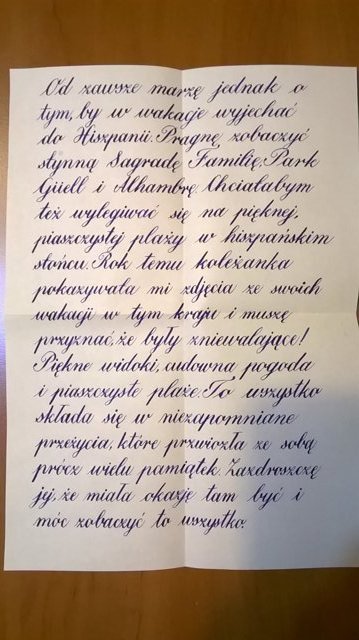 Od zawsze marzę jednak o
tym, by w wakacje wyjechać
do Hiszpanii. Pragnę zobaczyć
słynną Sagradę Familię, Park
Güell i Alhambrę. Chciałabym
też wylegiwać się na pięknej,
piaszczystej plaży w hiszpańskim
słońcu. Rok temu koleżanka
pokazywała mi zdjęcia ze swoich
wakacji w tym kraju i muszę
przyznać, że były zniewalające!
Piękne widoki, cudowna pogoda
i piaszczyste plaże. To wszystko
składa się w niezapomniane
przeżycia, które przwiozła ze sobą
prócz wielu pamiątek. Zazdroszczę
jej, że miała okazję tam być i
móc zobaczyć to wszystko.